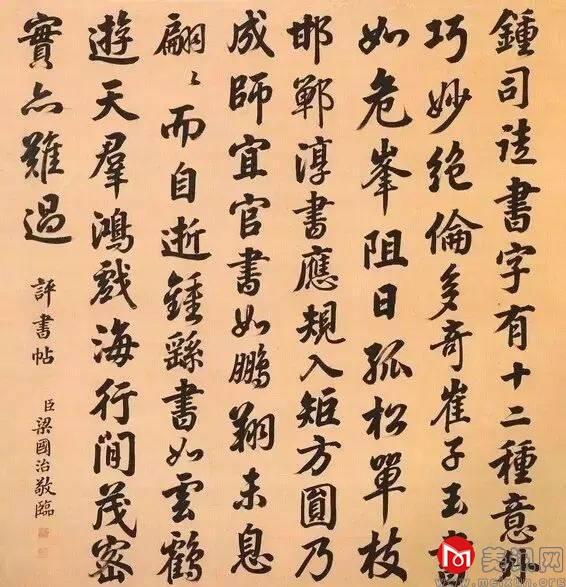 鍾司徒書字有十二種意外
巧妙絕倫多奇崔子玉書
如危峯阻日孤松單枝
邯鄲淳書應規入矩方圓乃
成師宜官書如鵬翔未息
翩〻而自逝鍾繇書如雲鶴
遊天羣鴻戲海行間茂密
實亦難過 評書帖 臣梁國治敬臨
美讯网